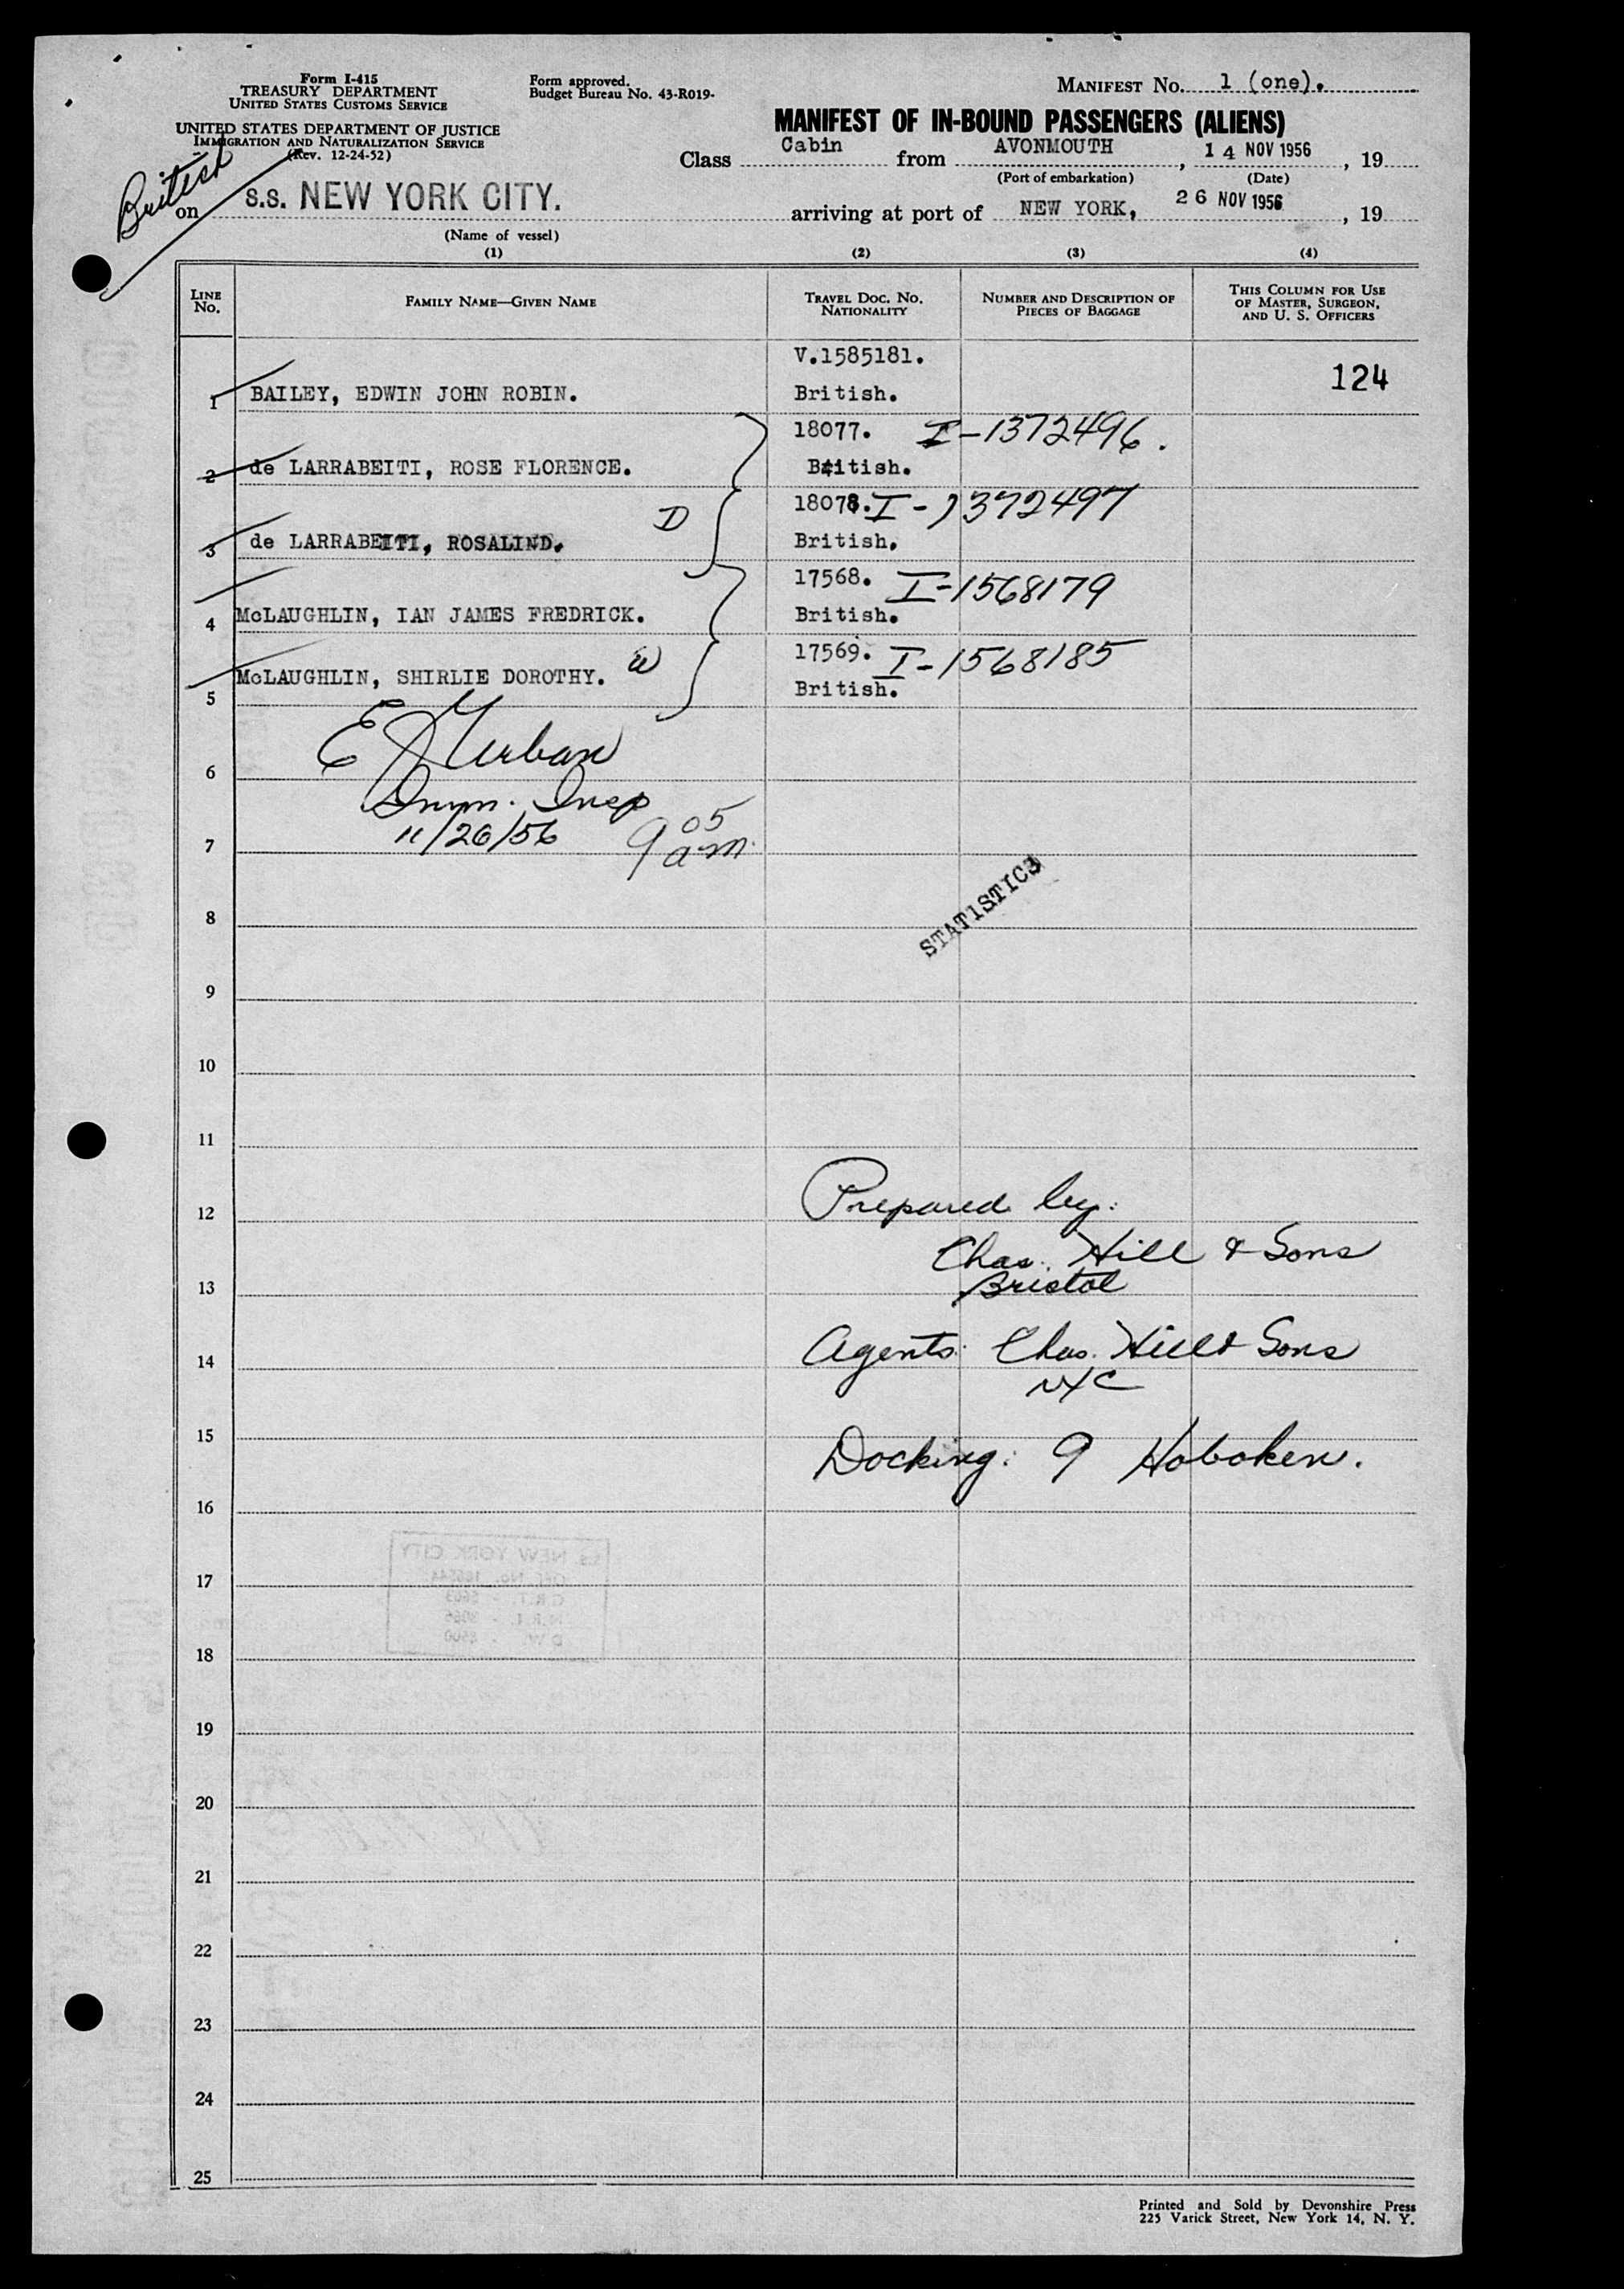 Form I-415
TREASURY DEPARTMENT
UNITED STATES CUSTOMS SERVICE
UNITED STATES DEPARTMENT OF JUSTICE
IMMIGRATION AND NATURALIZATION SERVICE
(Rev. 12-24-52)
Form approved.
Budget Bureau No. 43-R019-
MANIFEST No. 1 (one).
MANIFEST OF IN-BOUND PASSENGERS (ALIENS)
Class Cabin from AVONMOUTH, 14 NOV 1956, 19
(Port of embarkation) (Date)
British
on S.S. NEW YORK CITY. arriving at port of NEW YORK, 26 NOV 1956, 19
(Name of vessel)
(1) (2) (3) (4)
LINE No. FAMILY NAME—GIVEN NAME TRAVEL DOC. NO. NATIONALITY NUMBER AND DESCRIPTION OF PIECES OF BAGGAGE THIS COLUMN FOR USE OF MASTER, SURGEON, AND U. S. OFFICERS
V.1585181. 124
1 BAILEY, EDWIN JOHN ROBIN. British.
18077. I-1372496.
2 de LARRABEITI, ROSE FLORENCE. British.
18078. I-1372497
D
3 de LARRABEITI, ROSALIND. British.
17568. I-1568179
4 McLAUGHLIN, IAN JAMES FREDRICK. British.
17569. I-1568185
5 McLAUGHLIN, SHIRLIE DOROTHY. W British.
E J Urban
6
Imm. Insp
11/26/56 9 05 am.
7
STATISTICS
8
9
10
11
Prepared by:
12
Chas. Hill & Sons
Bristol
13
Agents: Chas. Hill & Sons
14
NYC
15
Docking: 9 Hoboken.
16
S.S. NEW YORK CITY
17
18
19
20
21
22
23
24
25
Printed and Sold by Devonshire Press
225 Varick Street, New York 14, N. Y.